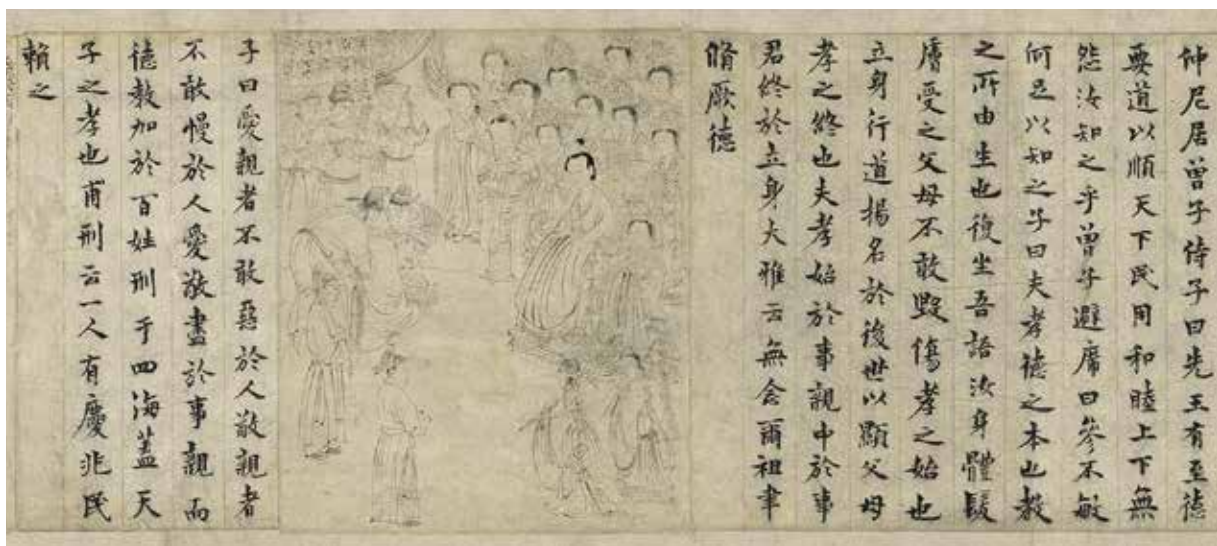 仲尼居曾子侍子曰先王有至德
要道以順天下民用和睦上下無
怨汝知之乎曾子避席曰參不敏
何足以知之子曰夫孝德之本也教
之所由生也復坐吾語汝身體髮
膚受之父母不敢毀傷孝之始也
立身行道揚名於後世以顯父母
孝之終也夫孝始於事親中於事
君終於立身大雅云無念爾祖聿
脩厥德
子曰愛親者不敢惡於人敬親者
不敢慢於人愛敬盡於事親而
德教加於百姓刑于四海蓋天
子之孝也甫刑云一人有慶兆民
賴之